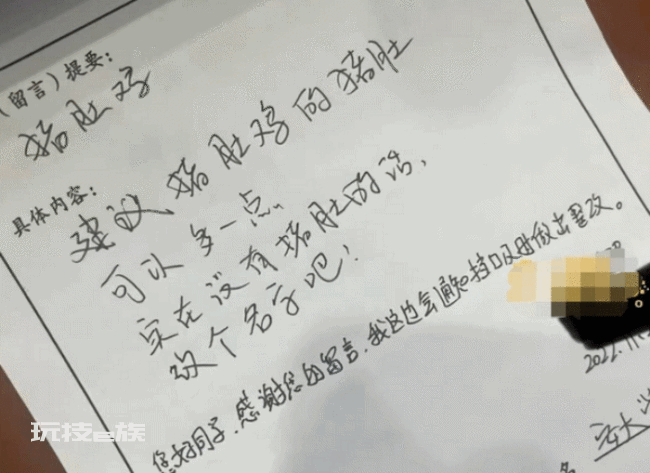 （留言）提要：
猪肚鸡
具体内容：
建议猪肚鸡的猪肚
可以多一点
实在没有猪肚的话，
改个名字吧！
您好同学，感谢您的留言，我这边会通知档口及时做出整改。
2022.11
玩技e族